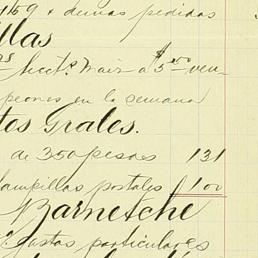 1169 & demas pedidos
llas
hect. Maiz a $5.00 ven-
peones en la semana
tos Grales.
de 350 pesos 131
tampillas postales 100
Barnetche
gastos particulares